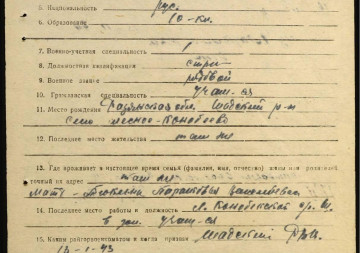 5. Национальность рус.
6. Образование 10-кл.
7. Военно-учетная специальность
8. Должностная квалификация стр-
9. Военное звание рядовой
10. Гражданская специальность учащ-ся
11. Место рождения Рязанская обл. Шацкий р-н
село Лесное-Конобеево
12. Последнее место жительства там же
13. Где проживает в настоящее время семья (фамилия, имя, отчество) жены или родителей
точный их адрес там же
мать-
14. Последнее место работы и должность Л. Конобеевская
учащ-ся
15. Каким райгорвоенкоматом и когда призван Шацкий РВК
1-43